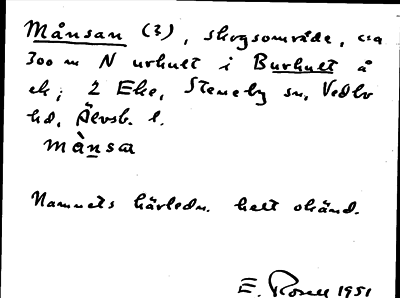 Månsan (3), skogsområde, c:a
300 m N urhult i Burhult å
ek; 2 Eke, Steneby sn, Vedbo
hd, Älvsb. l.
mànsa
Namnets härledn. helt okänd.
E. Rosell 1951